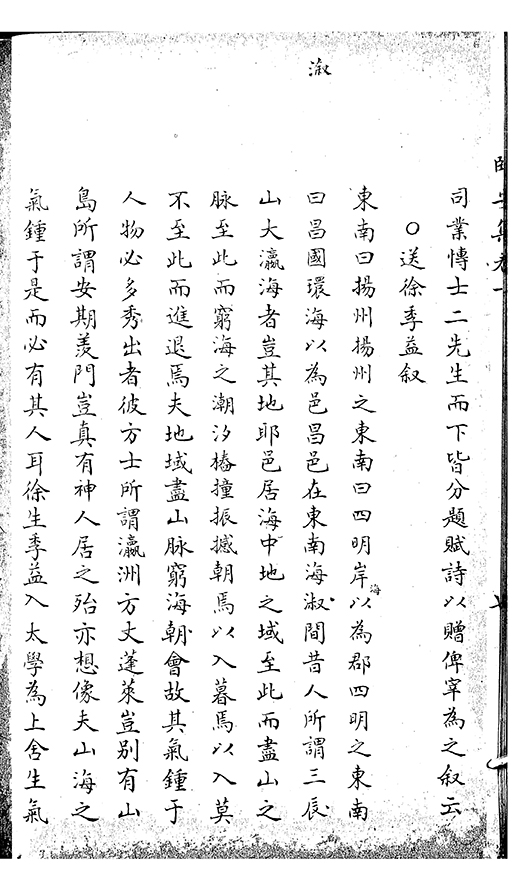 臥雲集卷一
司業博士二先生而下皆分題賦詩以贈俾宰為之叙云
○送徐季益叙
東南曰揚州揚州之東南曰四明岸海以為郡四明之東南
曰昌國環海以為邑昌邑在東南海淑間昔人所謂三辰
山大瀛海者豈其地耶邑居海中地之域至此而盡山之
脉至此而窮海之潮汐樁撞振撼朝焉以入暮焉以入莫
不至此而進退焉夫地域盡山脉窮海朝會故其氣鍾于
人物必多秀出者彼方士所謂瀛洲方丈蓬萊豈别有山
島所謂安期羨門豈真有神人居之殆亦想像夫山海之
氣鍾于是而必有其人耳徐生季益入太學為上舍生氣
溆